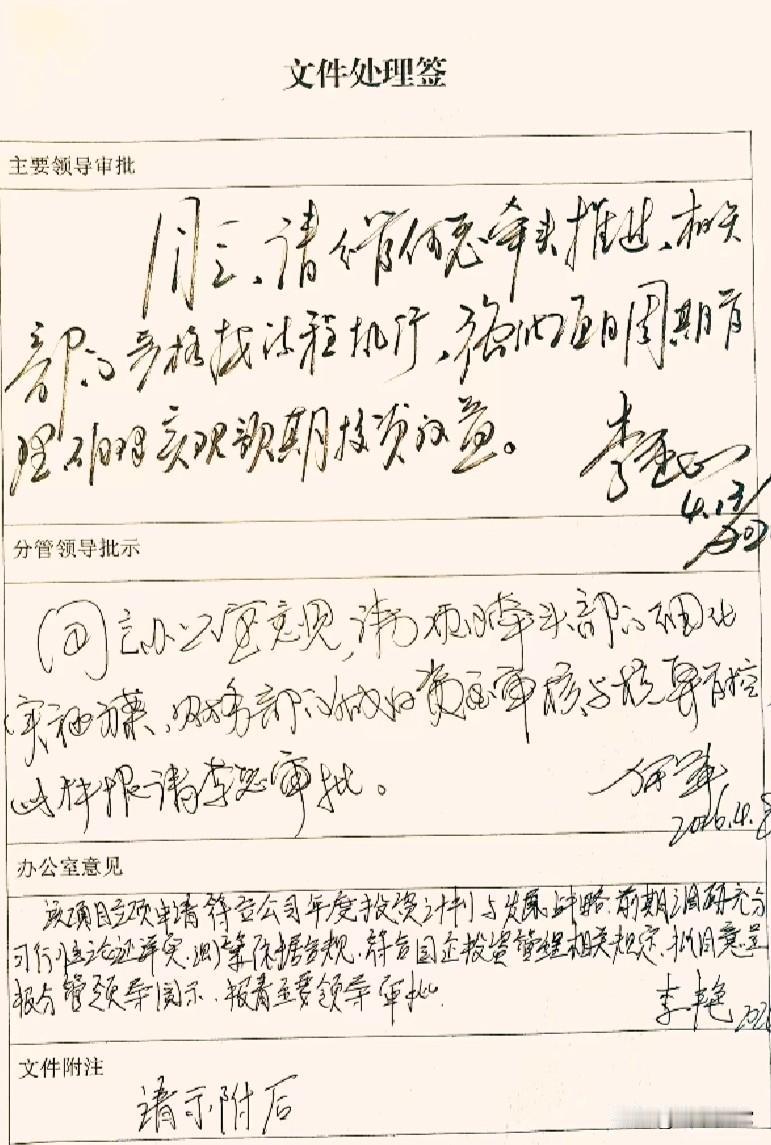 文件处理签
主要领导审批
同意、请分管何总牵头推进、相关
部门严格按流程执行、强化项目周期管
理 确保实现预期投资效益。
李
4.13
分管领导批示
同意办公室意见，请项目牵头部门细化
实施方案、财务部门做好资金审核与核算管控
此件报请李总审批。
何军
2026.4.
办公室意见
该项目立项申请符合公司年度投资计划与发展战略、前期调研充分
可行性论证详实、测算依据合规、符合国企投资管理相关规定、拟同意呈
报分管领导阅示、报请主要领导审批
李艳 202
文件附注
请示附后